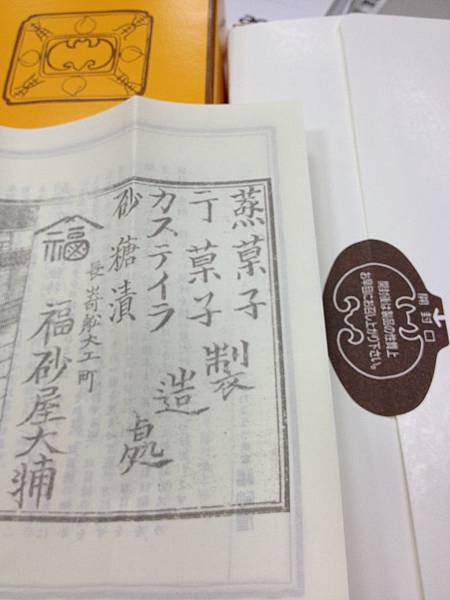 蒸菓子
干菓子
カステイラ
砂糖漬
製造処
福
長嵜舩大工町
福砂屋大輔
開封口
開封後は製品の性質上
お早目にお召し上り下さい。